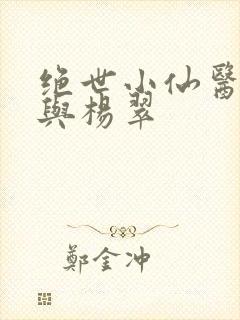 绝世小仙醫
與楊翠
鄭金冲